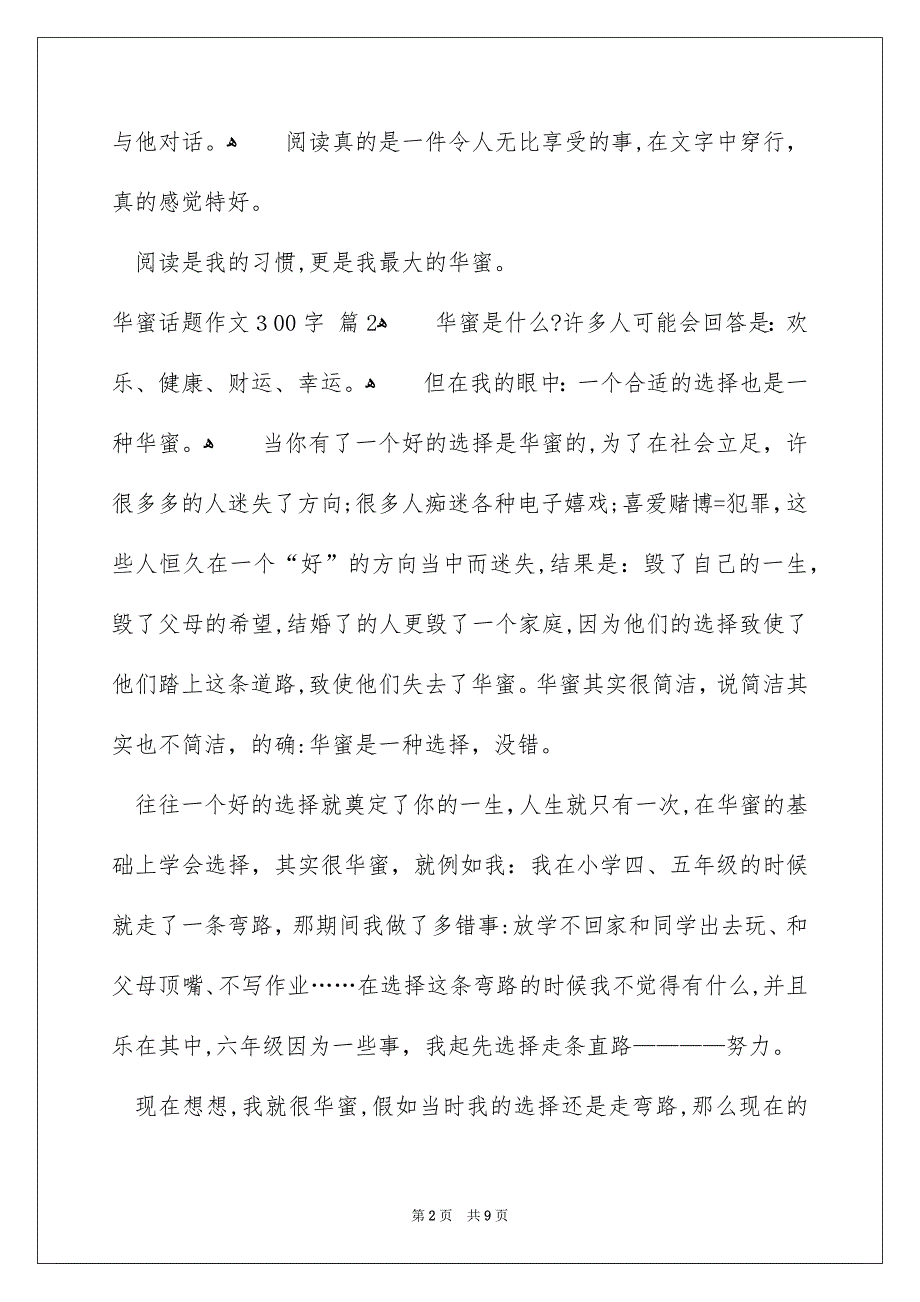 与他对话。ﻫ　　阅读真的是一件令人无比享受的事,在文字中穿行，
真的感觉特好。
阅读是我的习惯,更是我最大的华蜜。
华蜜话题作文３00字 篇2ﻫ　　华蜜是什么?许多人可能会回答是：欢
乐、健康、财运、幸运。ﻫ　　但在我的眼中：一个合适的选择也是一
种华蜜。ﻫ　　当你有了一个好的选择是华蜜的,为了在社会立足，许
很多多的人迷失了方向;很多人痴迷各种电子嬉戏;喜爱赌博=犯罪，这
些人恒久在一个“好”的方向当中而迷失,结果是：毁了自己的一生，
毁了父母的希望,结婚了的人更毁了一个家庭,因为他们的选择致使了
他们踏上这条道路,致使他们失去了华蜜。华蜜其实很简洁，说简洁其
实也不简洁，的确:华蜜是一种选择，没错。
往往一个好的选择就奠定了你的一生,人生就只有一次,在华蜜的基
础上学会选择，其实很华蜜，就例如我：我在小学四、五年级的时候
就走了一条弯路，那期间我做了多错事:放学不回家和同学出去玩、和
父母顶嘴、不写作业……在选择这条弯路的时候我不觉得有什么,并且
乐在其中,六年级因为一些事，我起先选择走条直路————努力。
现在想想,我就很华蜜,假如当时我的选择还是走弯路,那么现在的
第 2 页 共 9 页